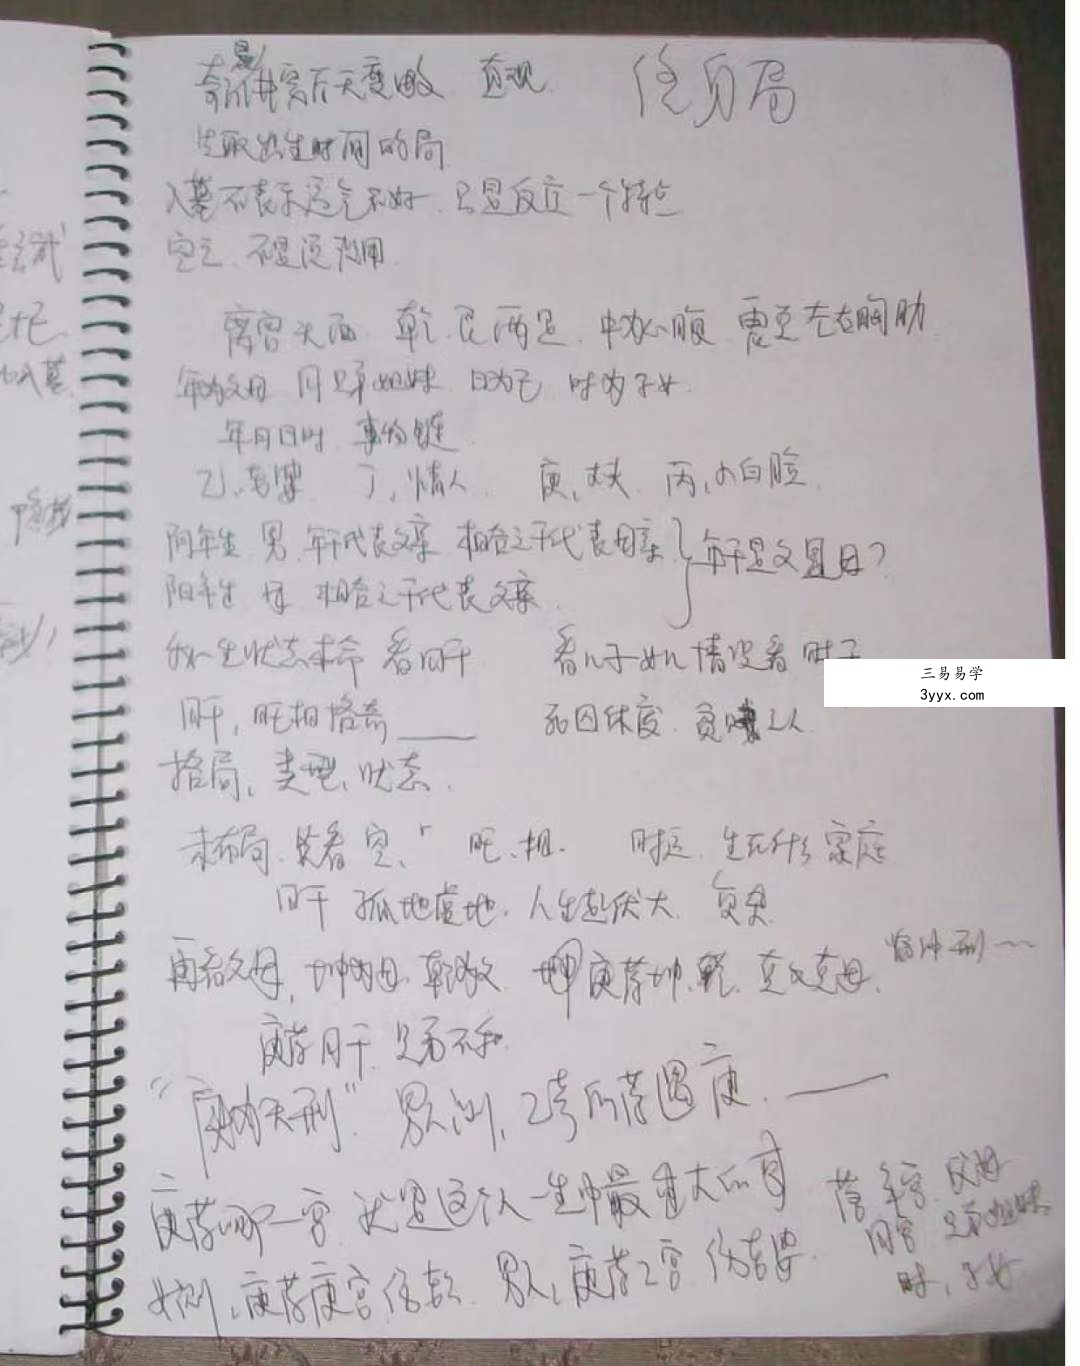 终身局
直观
先取出生时间的局
入墓不表示运气不好、只是反应一个特点
空亡、不是没引用
离宫头面 乾、艮两足、中为心腹 震兑左右胸肋
年为父母 月兄弟姐妹、日为己 时为子女、
年月日时 事物链
乙、老婆 丁、情人 庚、丈夫 丙、小白脸
阴年生 男 年干代表父亲 相合之干代表母亲 } 年干是父是母?
阳年生 相合之干代表父亲
一生状态本命 看日干 看儿子女儿情况看时干
三易易学
3yyx.com
日干、旺相格高 死囚休废、贫贱之人
格局、类型、状态、
未布局、先看空、 旺、相、 时运、生在什么家庭
日干 孤地虚地、人生起伏大、
再看父母、坤为母、乾为父 庚落坤、乾、克父克母、 临冲刑
庚落月干、兄弟不和
“庚为天刑” 男测、乙奇所落遇庚、
庚落哪一宫 就是这个人一生中最大的 落年宫、父母
月宫 兄弟姐妹
女测、庚落庚宫伤 男人、庚落乙宫 伤老婆、
时、子女